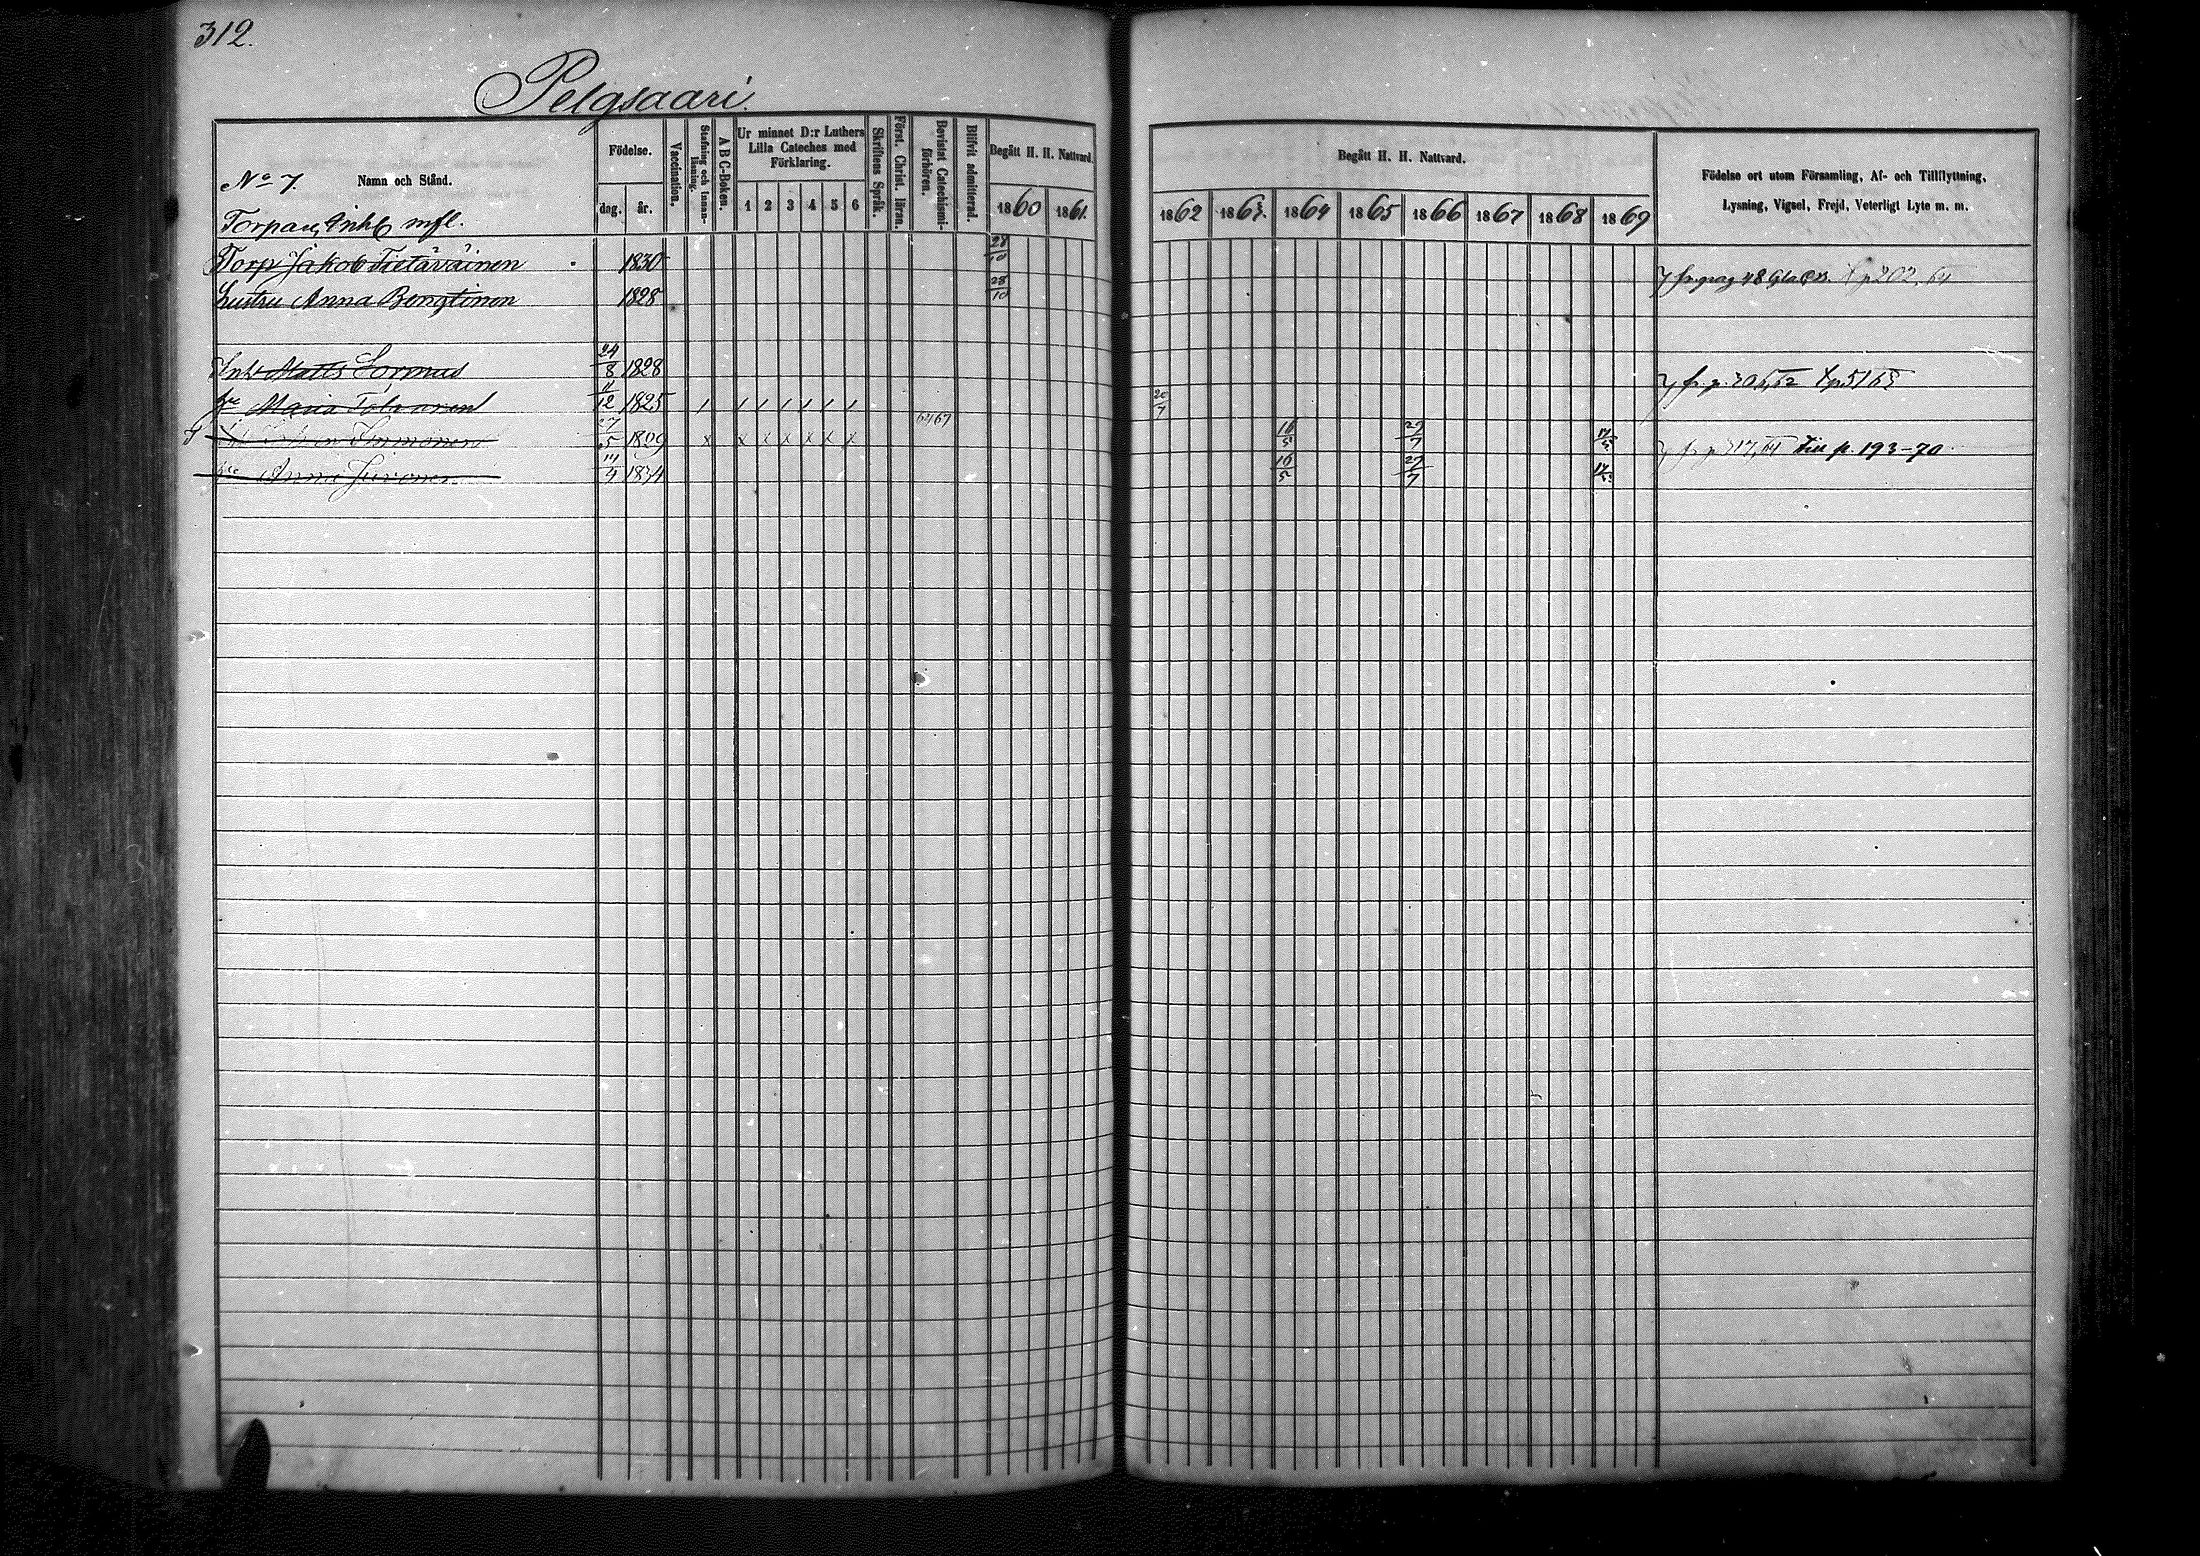 312.
Pelgsaari.
No 7. Namn och Stånd.
Torpare, Inh. mfl.
Födelse.
dag. år.
Vaccination.
Stafning och innanläsning.
A B C-Boken.
Ur minnet D:r Luthers Lilla Cateches med Förklaring.
1 2 3 4 5 6
Skriftens Språk.
Först. Christ. läran.
Bevistat Catechismiförhören.
Blifvit admitterad.
Begått H. H. Nattvard.
1860 1861.
Begått H. H. Nattvard.
1862 1863. 1864 1865 1866 1867 1868 1869
Födelse ort utom Församling, Af- och Tillflyttning,
Lysning, Vigsel, Frejd, Veterligt Lyte m. m.
Torp Jakob Tietäväinen 1830 28/10
Hustru Anna Bengtinen 1828 28/10 fr pag 48 202, 64
Inh Matts Sormus 24/8 1828 fr. p. 306, 62 p 51 65
Maria Tolvanen 11/12 1825 20/7
Immonen 27/5 1829 x x x x x x x 64 67 16/5 29/7 17/5 fr p 317, 64 till p. 193-70
Anna 14/4 1834 16/5 29/7 17/5